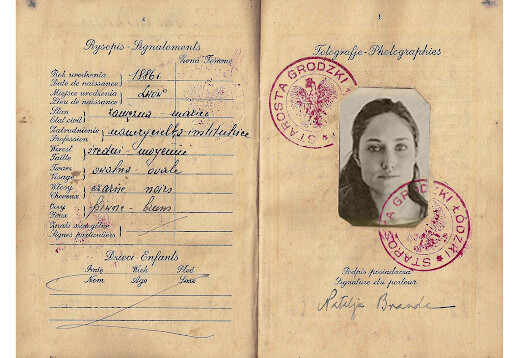 2
Rysopis - Signalements
Żona - Femme
Rok urodzenia 1886 r
Date de naissance
Miejsce urodzenia
Lieu de naissance
Stan zamężna - mariée
Etat civil
Zatrudnienie nauczycielka - institutrice
Profession
Wzrost średni - moyenne
Taille
Twarz owalna - ovale
Visage
Włosy czarne - noirs
Cheveux
Oczy piwne - bruns
Yeux
Znaki szczególne
Signes particuliers
Dzieci - Enfants
Imię Wiek Płeć
Nom Age Sexe
3
Fotografje - Photographies
STAROSTA GRODZKI
STAROSTA GRODZKI ŁÓDZKI
Podpis posiadacza
Signature du porteur
Natalja Brande